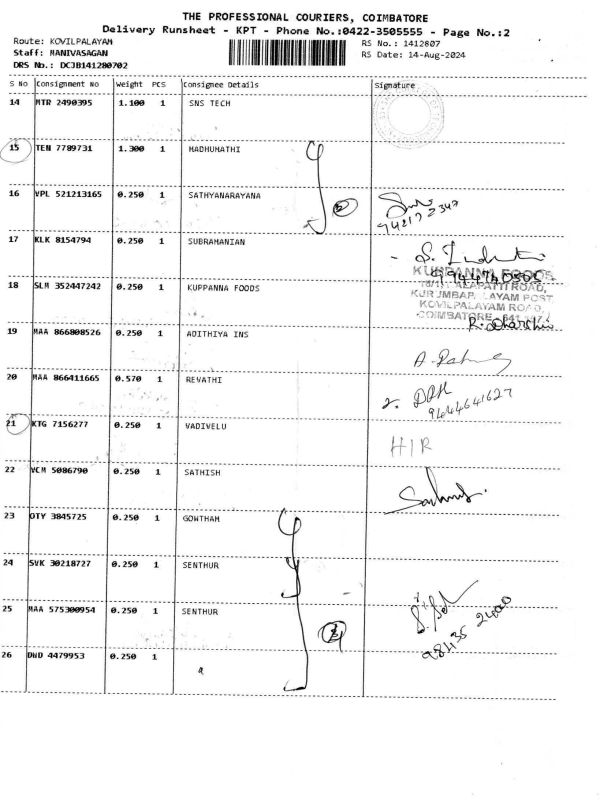 THE PROFESSIONAL COURIERS, COIMBATORE
Delivery Runsheet - KPT - Phone No.:0422-3505555 - Page No.:2
Route: KOVILPALAYAM
RS No.: 1412807
Staff: MANIVASAGAN
RS Date: 14-Aug-2024
DRS No.: DCJB141280702
S No Consignment No Weight PCS Consignee Details Signature
14 MTR 2490395 1.100 1 SNS TECH
15 TEN 7789731 1.300 1 MADHUMATHI
16 VPL 521213165 0.250 1 SATHYANARAYANA
17 KLK 8154794 0.250 1 SUBRAMANIAN
KUPPANNA FOODS
18 SLM 352447242 0.250 1 KUPPANNA FOODS
KURUMBAPALAYAM POST
KOVILPALAYAM ROAD,
COIMBATORE
19 MAA 866808526 0.250 1 ADITHIYA INS
20 MAA 866411665 0.570 1 REVATHI
9444641627
21 KTG 7156277 0.250 1 VADIVELU
H/R
22 VCM 5086790 0.250 1 SATHISH
23 OTY 3845725 0.250 1 GOWTHAM
24 SVK 30218727 0.250 1 SENTHUR
25 MAA 575300954 0.250 1 SENTHUR
98435 24000
26 DWD 4479953 0.250 1